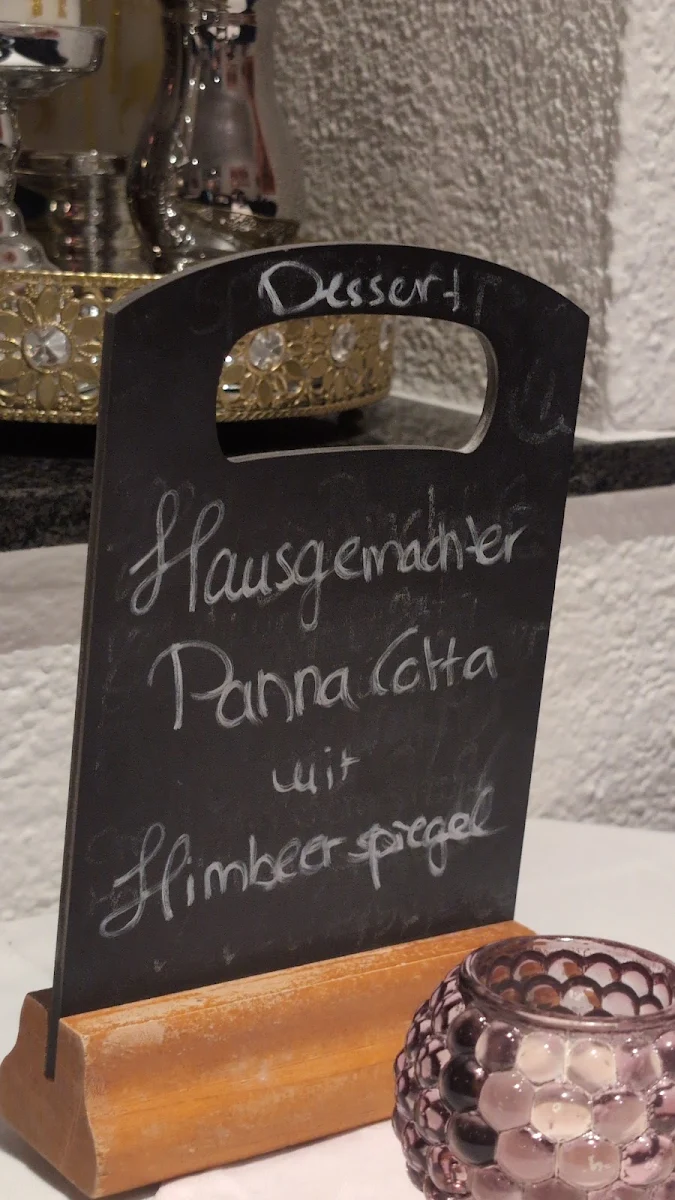 Dessert
Hausgemachter
Panna Cotta
mit
Himbeerspiegel